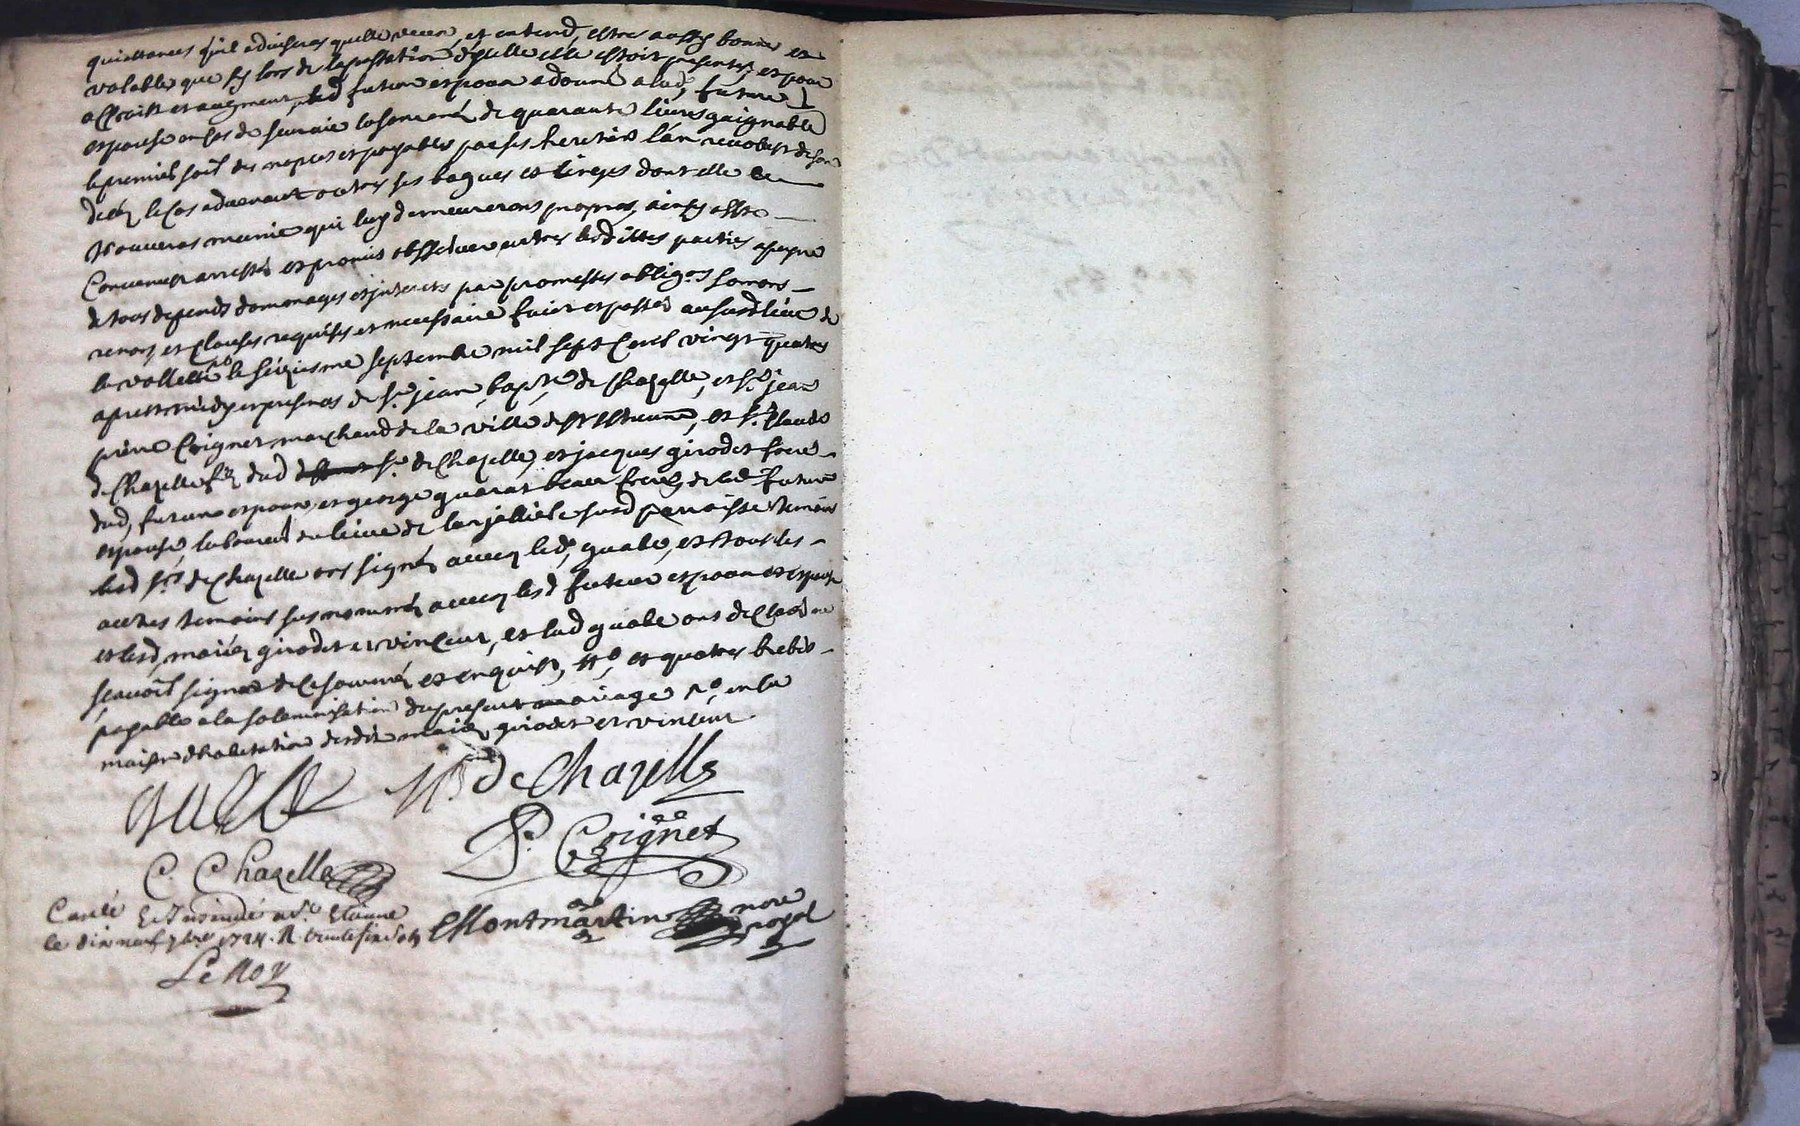 quictances quil aduiseras quelle veux, et entend, estre aussy bonne et
valable que sy lors de la prestation d'ycelle elle estoit presente, et pour
accroist et augment, led futur espoux a donné a lad, future
espouse en cas de suruie la somme de quarante liures gaignable
le premier soir des nopces et payable par ses heretiers l'an revolu de son
deces, le cas aduenant outres ses bagues et linges dont elle ce
trouueras munie qui luy demeureront propres, ainsy esté
Conuenu arresté et promis obseruer entres lesdittes parties a peyne
de tous depends domonages et jnterets par promesses obligaons soumons
renons et Clauses requises et necessaire faict et passé au susd lieu de
la vallette le seiziesme septembre mil sept Cent vingt quatres
apres midy en presences de sr jean bapte de Chazelle, et sr jean
pierre Coignet marchand de la ville de st Estienne, et sr Claude
de Chazelle fils dud sr de Chazelle, et jacques girodet frere
dud, futur espoux, et george quarat beau frere de lad future
espouse, laboureur du lieu de susd parroisse temoins
lesd srs de Chazelle ont signé auecq led, guale, et tous les
autres temoins sus nommés auecq lesd futur espoux et espouse
et lesd, mariés girodet et vincent, et lad guale ont declaré ne
sçauoir signer de ce sommé et enquis, et quatres brebis
payable a la solemnisation du present mariage en la
maison d'habitation desdits mariés girodet et vincent
de Chazelle
P. Coignet
C. Chazelle
Montmartin nore royal
Controllé Et Insinué a St. Etienne
le dix neuf 7bre 1724. R trente six sols
Le Roy